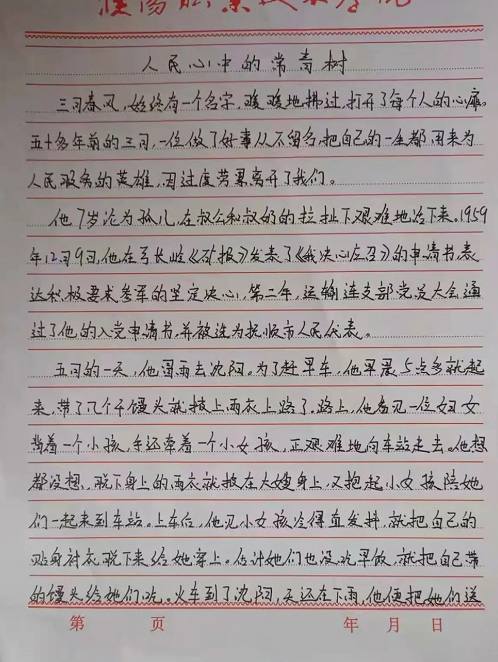 濮阳职业技术学院
人民心中的常青树
三月春风,始终有一个名字,暖暖地拂过,打开了每个人的心扉。
五十多年前的三月,一位做了好事从不留名,把自己的一生都用来为
人民服务的英雄,因过度劳累离开了我们。
他7岁沦为孤儿,在叔公和叔奶的拉扯下艰难地活下来。1959
年12月9日,他在弓长岭《矿报》发表了《我决心应召》的申请书,表
达积极要求参军的坚定决心,第二年,运输连支部党员大会,通
过了他的入党申请书,并被选为抚顺市人民代表。
五月的一天,他冒雨去沈阳。为了赶早车,他早晨5点多就起
来,带了几个干馒头就披上雨衣上路了,路上,他看见一位妇女
背着一个小孩,手还牵着一个小女孩,正艰难地向车站走去。他想
都没想,脱下身上的雨衣就披在大嫂身上,又抱起小女孩陪她
们一起来到车站。上车后,他见小女孩冷得直发抖,就把自己的
贴身衬衣脱下来给她穿上。估计她们也没吃早饭,就把自己带
的馒头给她们吃。火车到了沈阳,天还在下雨,他便把她们送
第 页 年 月 日